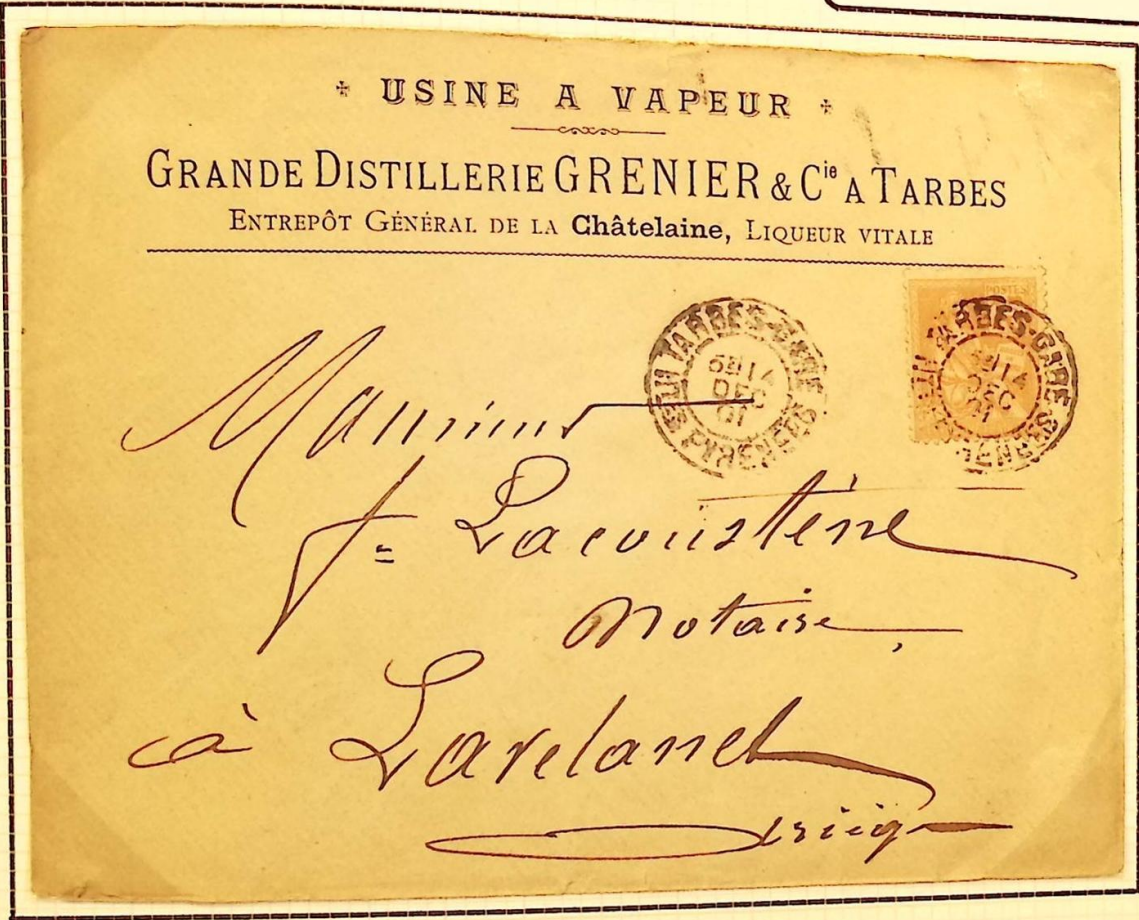 USINE A VAPEUR
GRANDE DISTILLERIE GRENIER & Cie A TARBES
ENTREPÔT GÉNÉRAL DE LA Châtelaine, LIQUEUR VITALE
POSTES
TARBES-GARE
14
DEC
01
PYRENEES
TARBES-GARE
14
DEC
01
Monsieur
Lacoustène
Notaire
à Lavelanet
Ariège